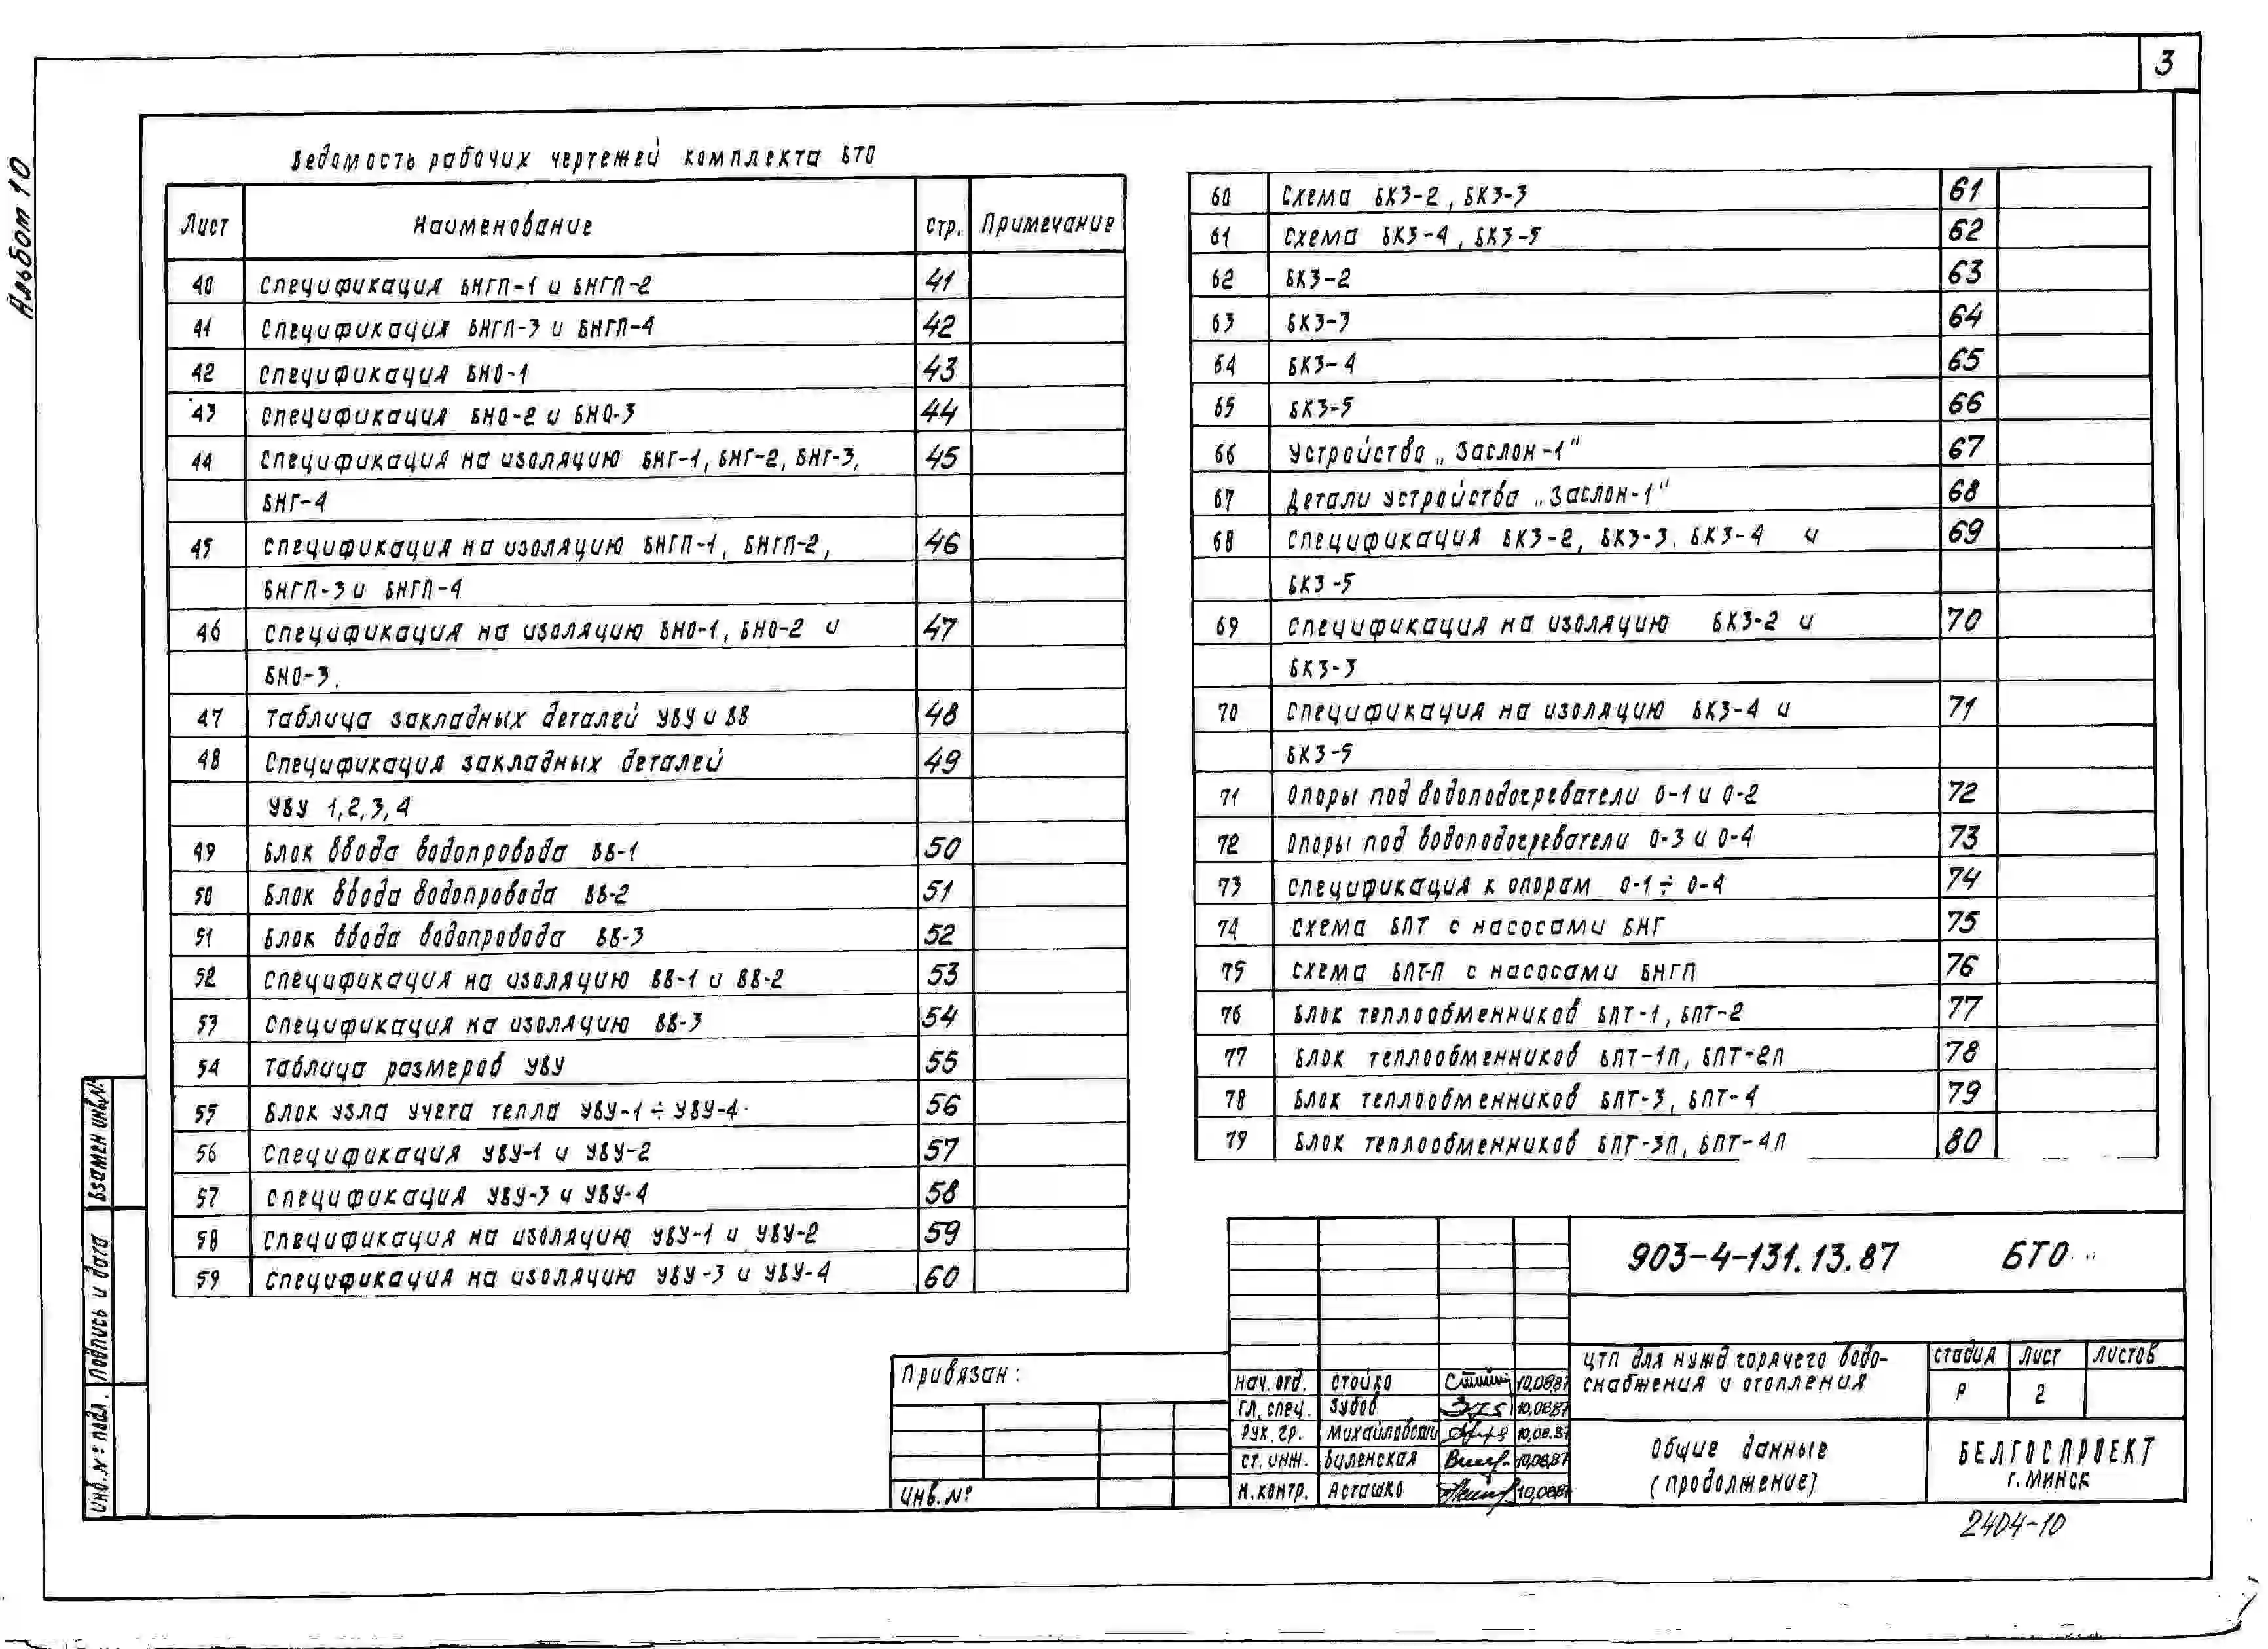 3
Альбом 10
Ведомость рабочих чертежей комплекта БТО
Лист Наименование стр. Примечание
40 Спецификация БНГП-1 и БНГП-2 41
41 Спецификация БНГП-3 и БНГП-4 42
42 Спецификация БНО-1 43
43 Спецификация БНО-2 и БНО-3 44
44 Спецификация на изоляцию БНГ-1, БНГ-2, БНГ-3, 45
БНГ-4
45 Спецификация на изоляцию БНГП-1, БНГП-2, 46
БНГП-3 и БНГП-4
46 Спецификация на изоляцию БНО-1, БНО-2 и 47
БНО-3.
47 Таблица закладных деталей УВУ и ВВ 48
48 Спецификация закладных деталей 49
УВУ 1,2,3,4
49 Блок ввода водопровода ВВ-1 50
50 Блок ввода водопровода ВВ-2 51
51 Блок ввода водопровода ВВ-3 52
52 Спецификация на изоляцию ВВ-1 и ВВ-2 53
53 Спецификация на изоляцию ВВ-3 54
54 Таблица размеров УВУ 55
55 Блок узла учета тепла УВУ-1 ÷ УВУ-4 56
56 Спецификация УВУ-1 и УВУ-2 57
57 Спецификация УВУ-3 и УВУ-4 58
58 Спецификация на изоляцию УВУ-1 и УВУ-2 59
59 Спецификация на изоляцию УВУ-3 и УВУ-4 60
60 Схема БКЗ-2, БКЗ-3 61
61 Схема БКЗ-4, БКЗ-5 62
62 БКЗ-2 63
63 БКЗ-3 64
64 БКЗ-4 65
65 БКЗ-5 66
66 Устройство „Заслон-1" 67
67 Детали устройства „Заслон-1" 68
68 Спецификация БКЗ-2, БКЗ-3, БКЗ-4 и 69
БКЗ-5
69 Спецификация на изоляцию БКЗ-2 и 70
БКЗ-3
70 Спецификация на изоляцию БКЗ-4 и 71
БКЗ-5
71 Опоры под водоподогреватели О-1 и О-2 72
72 Опоры под водоподогреватели О-3 и О-4 73
73 Спецификация к опорам О-1 ÷ О-4 74
74 Схема БПТ с насосами БНГ 75
75 Схема БПТ-П с насосами БНГП 76
76 Блок теплообменников БПТ-1, БПТ-2 77
77 Блок теплообменников БПТ-1П, БПТ-2П 78
78 Блок теплообменников БПТ-3, БПТ-4 79
79 Блок теплообменников БПТ-3П, БПТ-4П 80
Взамен инв.№
Подпись и дата
Инв.№ подл.
Привязан:
Инв.№
903-4-131.13.87 БТО
ЦТП для нужд горячего водо-
снабжения и отопления
Стадия Лист Листов
Р 2
Нач. отд. Стойко 10.08.87
Гл. спец. Зубов 10.08.87
Рук. гр. Михайловский 10.08.87
Ст. инж. Виленская 10.08.87
Н. контр. Асташко 10.08.87
Общие данные
(продолжение)
БЕЛГОСПРОЕКТ
г. Минск
2404-10